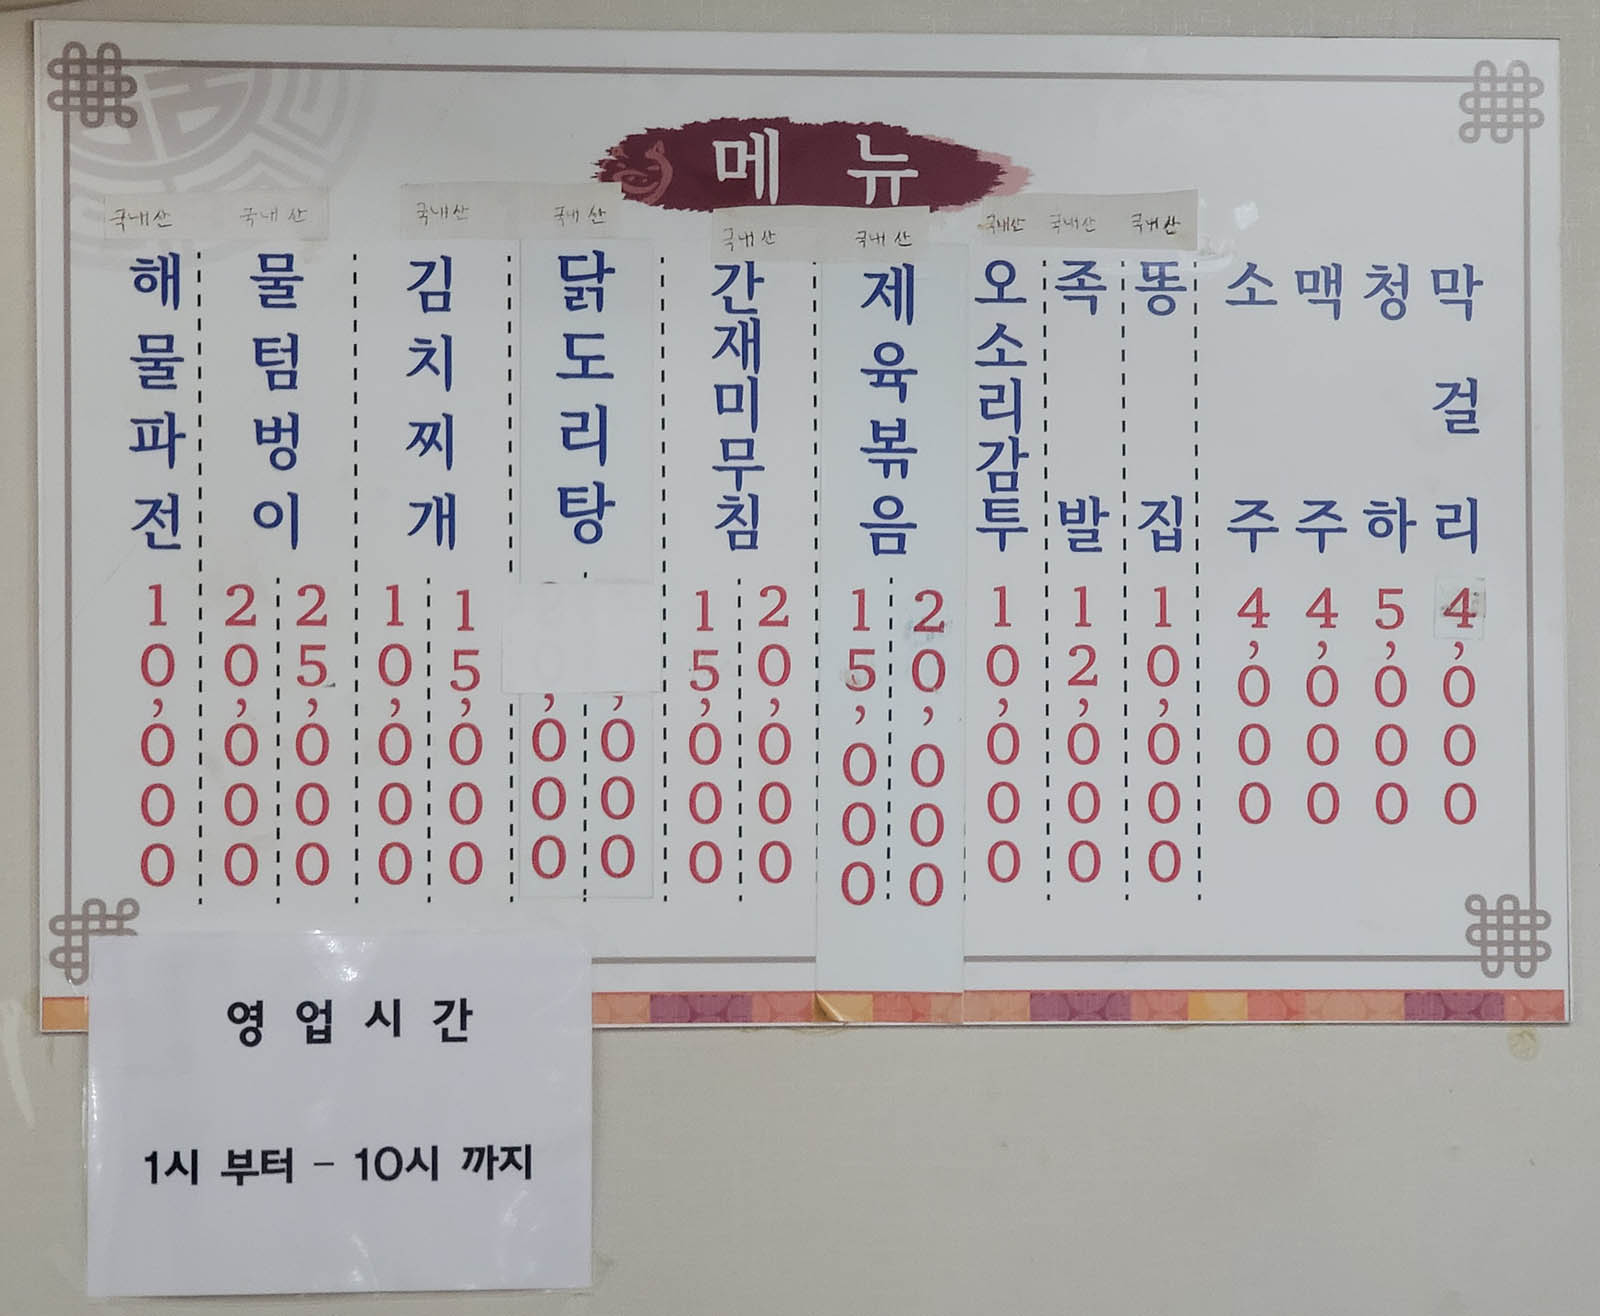 메뉴
국내산 국내산 국내산 국내산 국내산 국내산 국내산 국내산 국내산
해물파전 10,000
물텀벙이 20,000 25,000
김치찌개 10,000 15,000
닭도리탕 ,000 ,000
간재미무침 15,000 20,000
제육볶음 15,000 20,000
오소리감투 10,000
족발 12,000
똥집 10,000
소주 4,000
맥주 4,000
청하 5,000
막걸리 4,000
영업시간
1시 부터 - 10시 까지